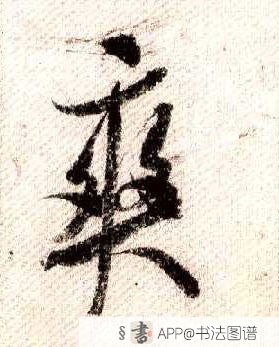 爽
§書 APP@书法图谱